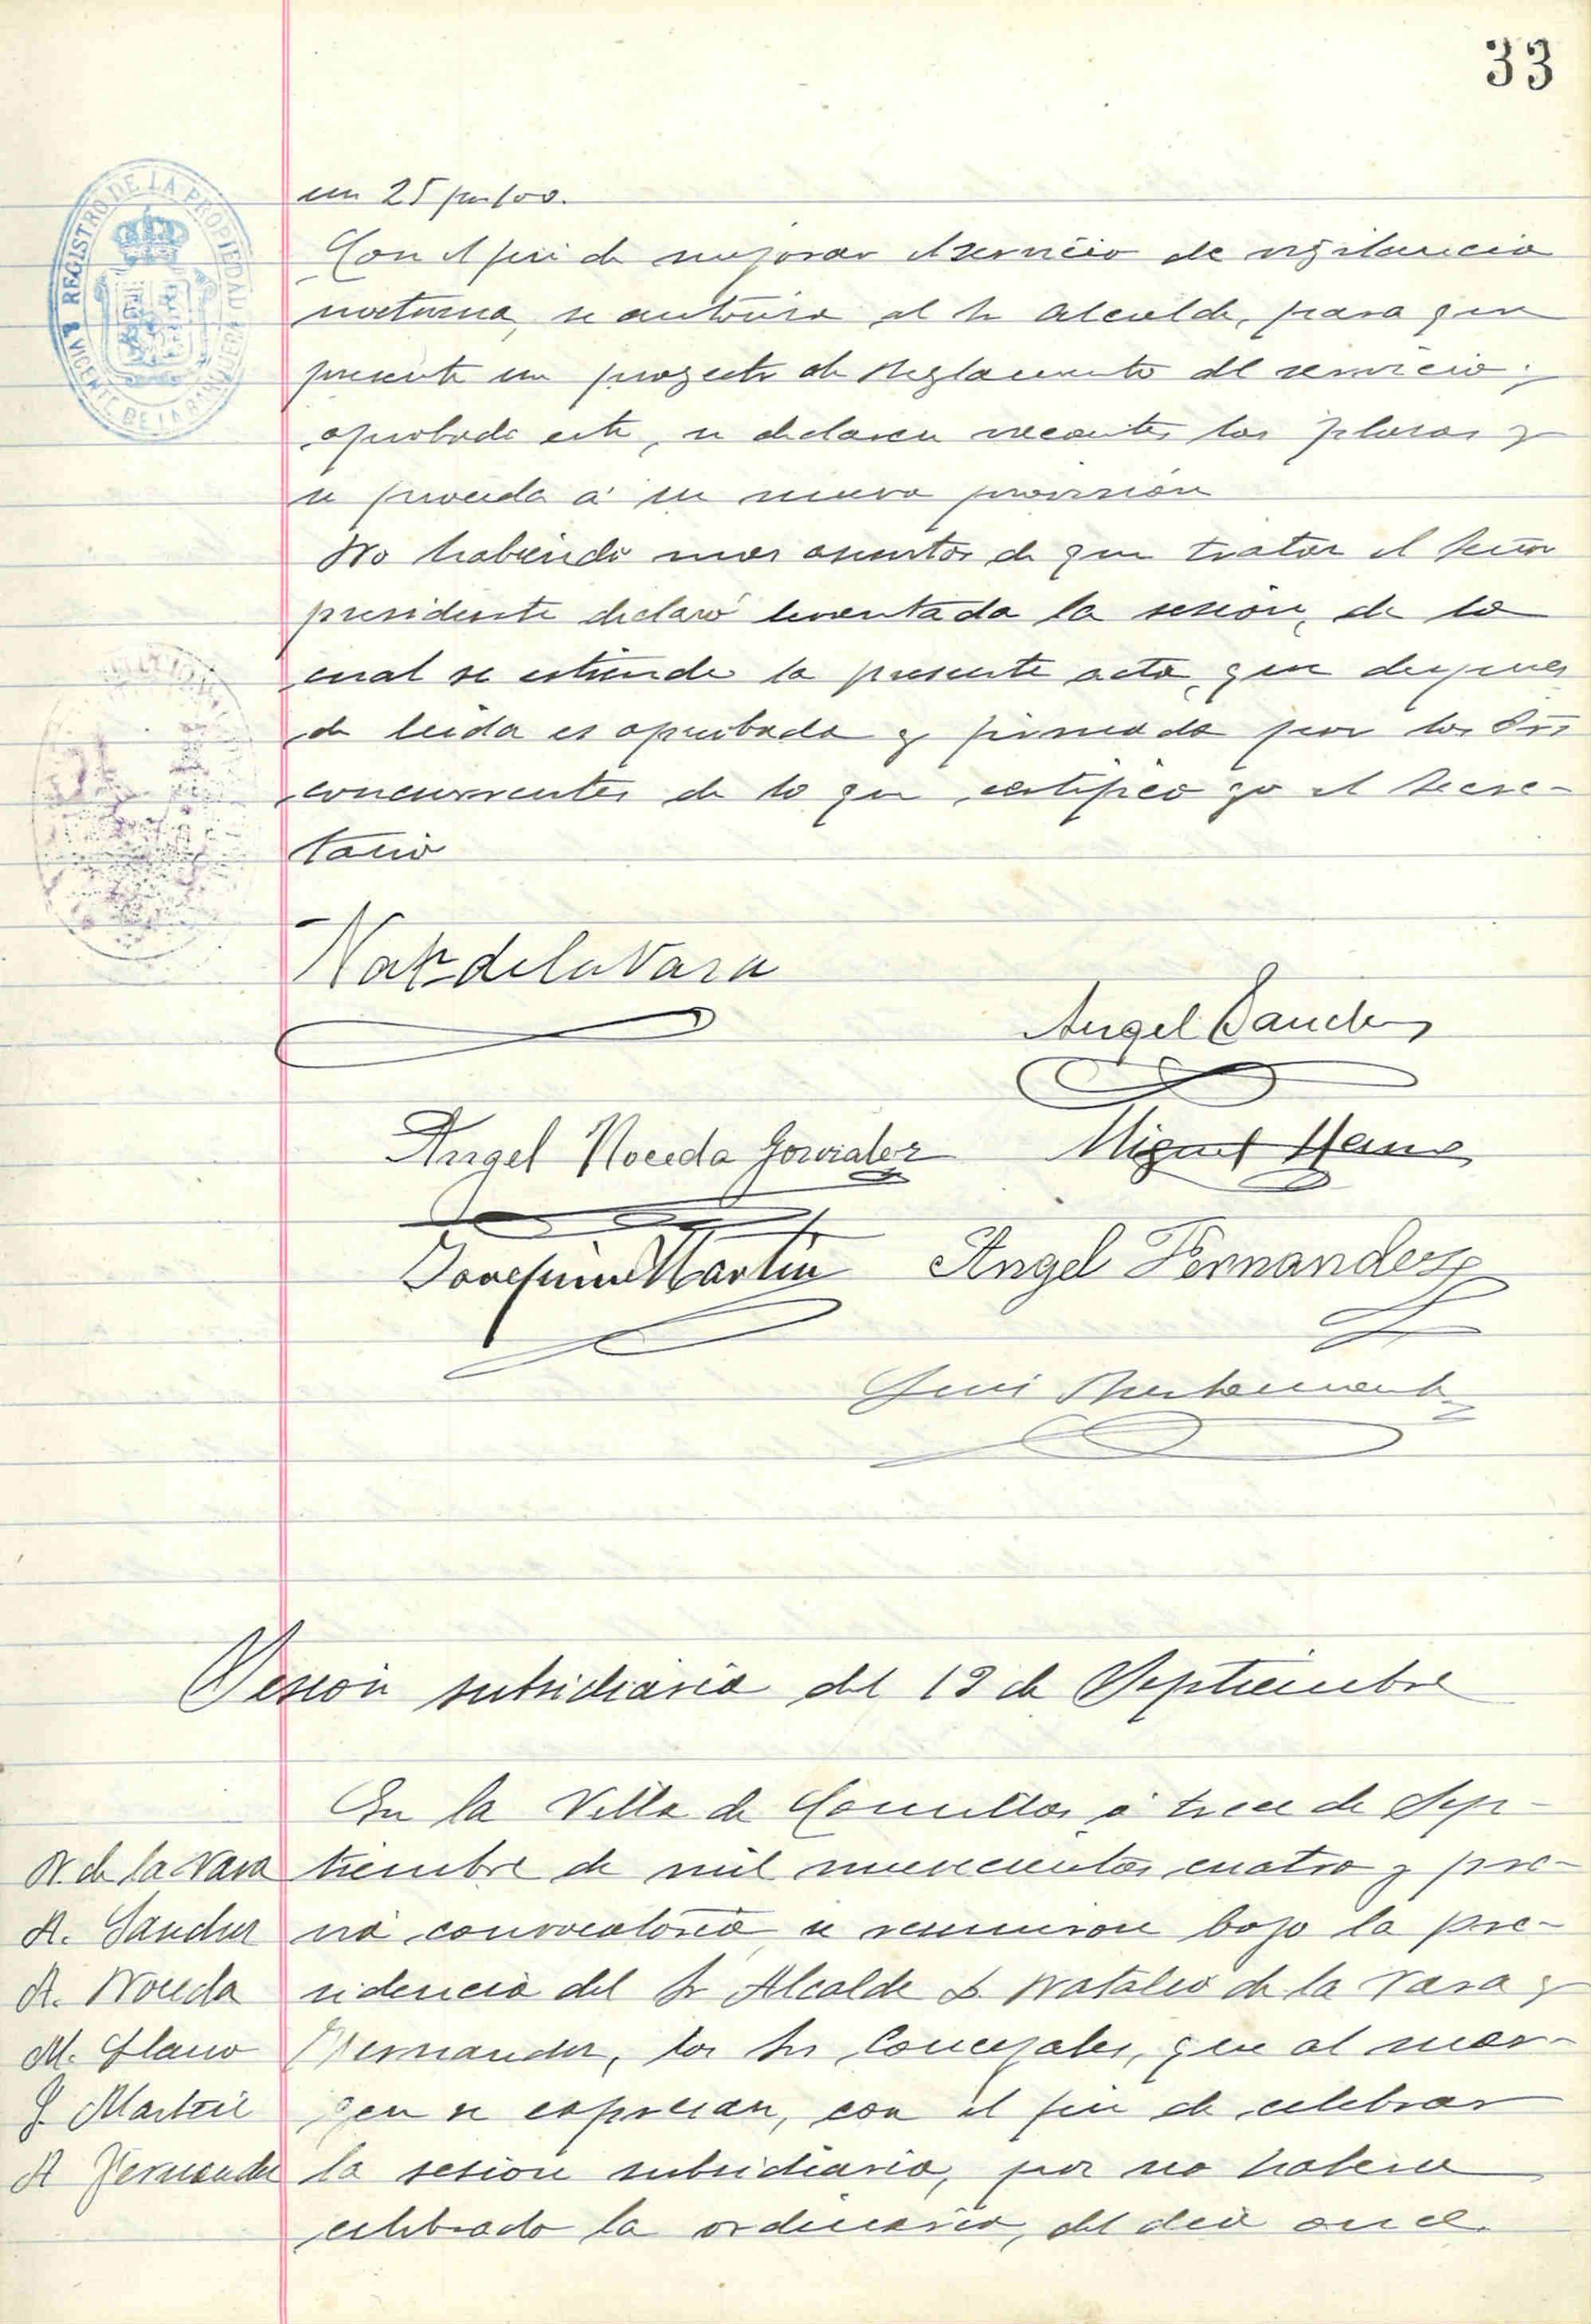 33
REGISTRO DE LA PROPIEDAD
VICENTE DE LA BARQUERA
un 25 por 100.
Con el fin de mejorar el servicio de vigilancia
nocturna, se autoriza al Sr Alcalde, para que
presente un proyecto de Reglamento del servicio y
aprobado este, se declaren vacantes las plazas y
se proceda á su nueva provisión
No habiendo mas asuntos de que tratar el Señor
presidente declaró levantada la sesión, de la
cual se estiende la presente acta, que despues
de leida es aprobada y firmada por los Sres
concurrentes de lo que certifico yo el Secre-
tario
Nat. de la Vara
Angel Sanchez
Angel Noceda Gonzalez
Miguel Llano
Joaquin Martin
Angel Fernandez
Sesion subsidiaria del 13 de Septiembre
En la Villa de Comillas á trece de Sep-
N. de la Vara
tiembre de mil novecientos cuatro y pre-
A. Sanchez
via convocatoria se reunieron bajo la pre-
A. Noceda
sidencia del Sr Alcalde D. Natalio de la Vara y
M. Llano
Fernandez, los Srs Concejales, que al mar-
J. Martin
gen se espresan, con el fin de celebrar
A Fernandez
la sesion subsidiaria, por no haberse
celebrado la ordinaria, del dia once.